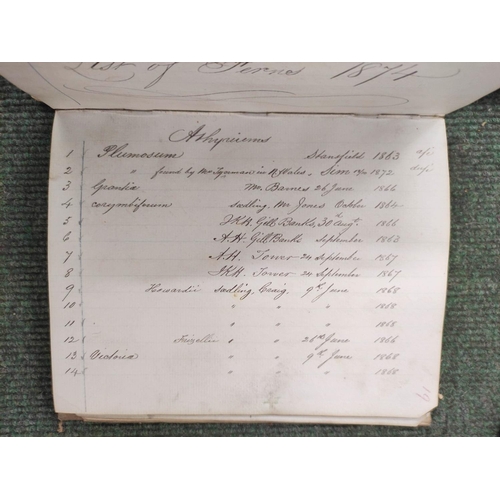 List of Ferns 1874
Athyriums
1 Plumosum Stansfield 1863
2 " found by Mr in N. Wales, Sim 1872
3 Grantia Mr. Barnes 26 June 1866
4 corymbiferum Mr Jones October 1864
5 J.K.H. Gill Banks, 30th Augt. 1866
6 A.H. Gill Banks September 1863
7 A.H. Tower 24 September 1867
8 J.K.H. Tower 24 September 1867
9 Howardii Craig, 9th June 1868
10 " " " 1868
11 " " " 1868
12 Frizellia " " 26th June 1866
13 Victoria " " 9th June 1868
14 " " " 1868
19